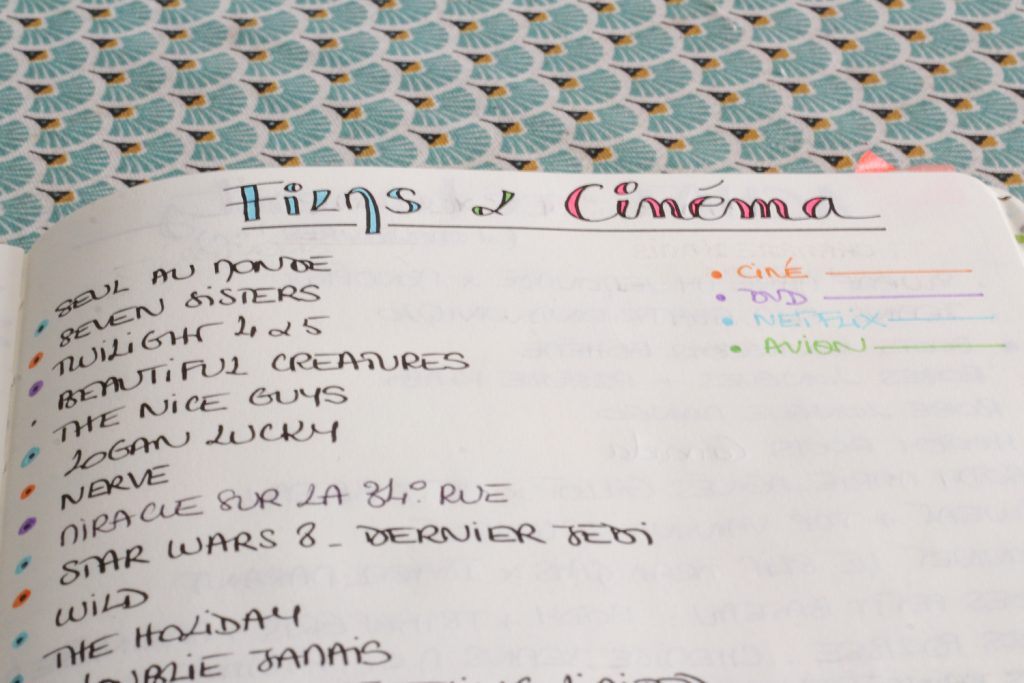 Films & Cinéma
SEUL AU MONDE
SEVEN SISTERS
TWILIGHT 4 & 5
BEAUTIFUL CREATURES
THE NICE GUYS
LOGAN LUCKY
NERVE
MIRACLE SUR LA 34e RUE
STAR WARS 8 - DERNIER JEDI
WILD
THE HOLIDAY
JAMAIS
• CINÉ
• DVD
• NETFLIX
• AVION